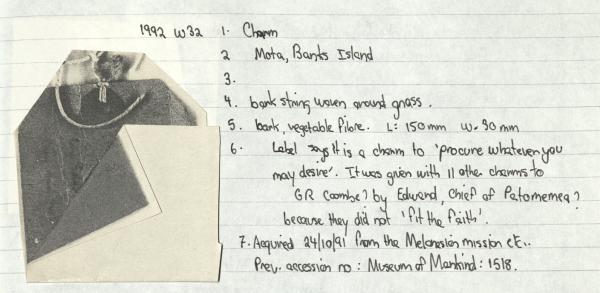 1992 W32 1. Charm
2 Mota, Banks Island
3.
4. bark string woven around grass.
5. bark, vegetable fibre. L: 150mm W. 30 mm
6. Label says it is a charm to 'procure whatever you
may desire'. It was given with 11 other charms to
GR Coombe? by Edward, Chief of Patomemea?
because they did not 'fit the faith'.
7. Acquired 24/10/91 from the Melanesian mission etc..
Prev. accession no : Museum of Mankind : 1518.